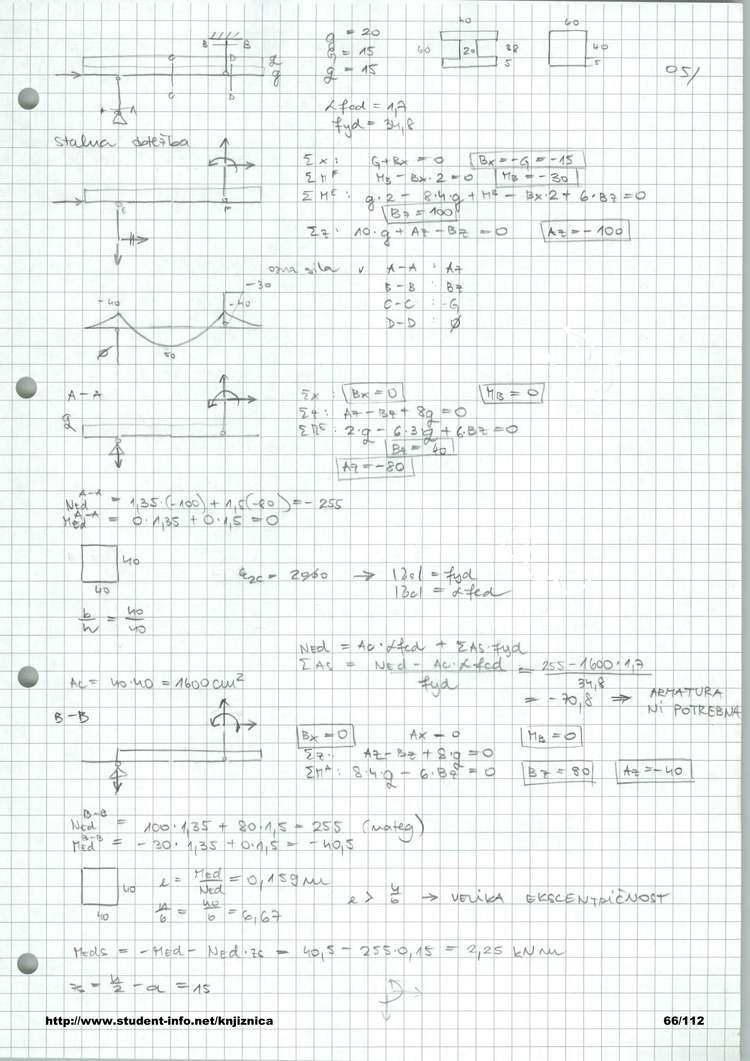 g = 20
G = 15
q = 15
40
60
20
38
5
40
40
5
05/
B B
C D
q
g
A A
C D
αfcd = 1,7
fyd = 34,8
Stalna obtežba
Σx: G+Bx = 0 Bx = -G = -15
ΣM MB - Bx·2 = 0 MB = -30
ΣM g·2 - 8·4·g + MB - Bx·2 + 6·Bz = 0
Bz = 100
Σz: 10·g + Az - Bz = 0 Az = -100
osna sila v A-A : Az
B-B : Bz
C-C : -G
D-D : Ø
-30
-40 -40
50
A-A
q
Σx: Bx = 0 MB = 0
8q = 0
2·q - 6·3·q + 6·Bz = 0
Bz = 40
Az = -80
Ned A-A = 1,35·(-100) + 1,5(-80) = -255
Med A-A = 0·1,35 + 0·1,5 = 0
40
40
b/h = 40/40
εzc = → = fyd
= αfcd
Ned = Ac·αfcd + ΣAs·fyd
ΣAs = (Ned - Ac·αfcd)/fyd = (255 - 1600·1,7)/34,8
= -70,8 ⇒ ARMATURA NI POTREBNA
Ac = 40·40 = 1600 cm²
B-B
Bx = 0 Ax = 0 MB = 0
Σz: Az - Bz + 8·q = 0
ΣMA: 8·4·q - 6·Bz = 0 Bz = 80 Az = -40
Ned B-B = 100·1,35 + 80·1,5 = 255 (nateg)
Med B-B = -30·1,35 + 0·1,5 = -40,5
40
40
e = Med/Ned = 0,159 m
h/6 = 40/6 = 6,67
e > h/6 → VELIKA EKSCENTRIČNOST
Meds = -Med - Ned·zs = 40,5 - 255·0,15 = 2,25 kNm
zs = h/2 - a = 15
http://www.student-info.net/knjiznica
66/112